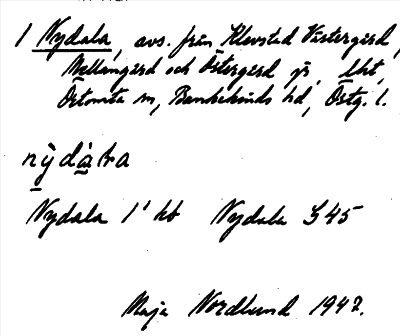 1 Nydala, avs. från Klevstad Västergård,
Mellangård och Östergård gs, lht,
Örtomta sn, Bankekinds hd, Östg. l.
nỳdàla
Nydala 1' kb Nydala S45
Maja Nordlund 1947.